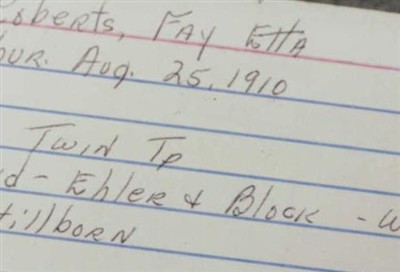 oberts, FAY EttA
our. Aug. 25, 1910
Twin Tp
d - EhleR & Block - W
tillborn